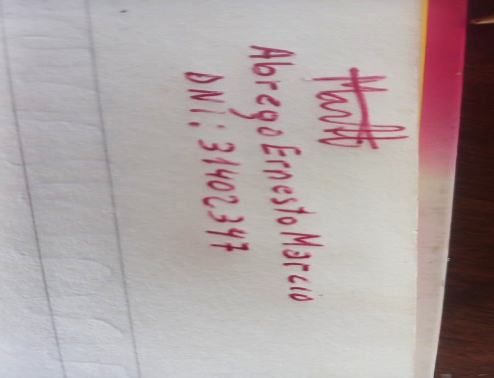 Abrego Ernesto Marcio
DNI: 31402347